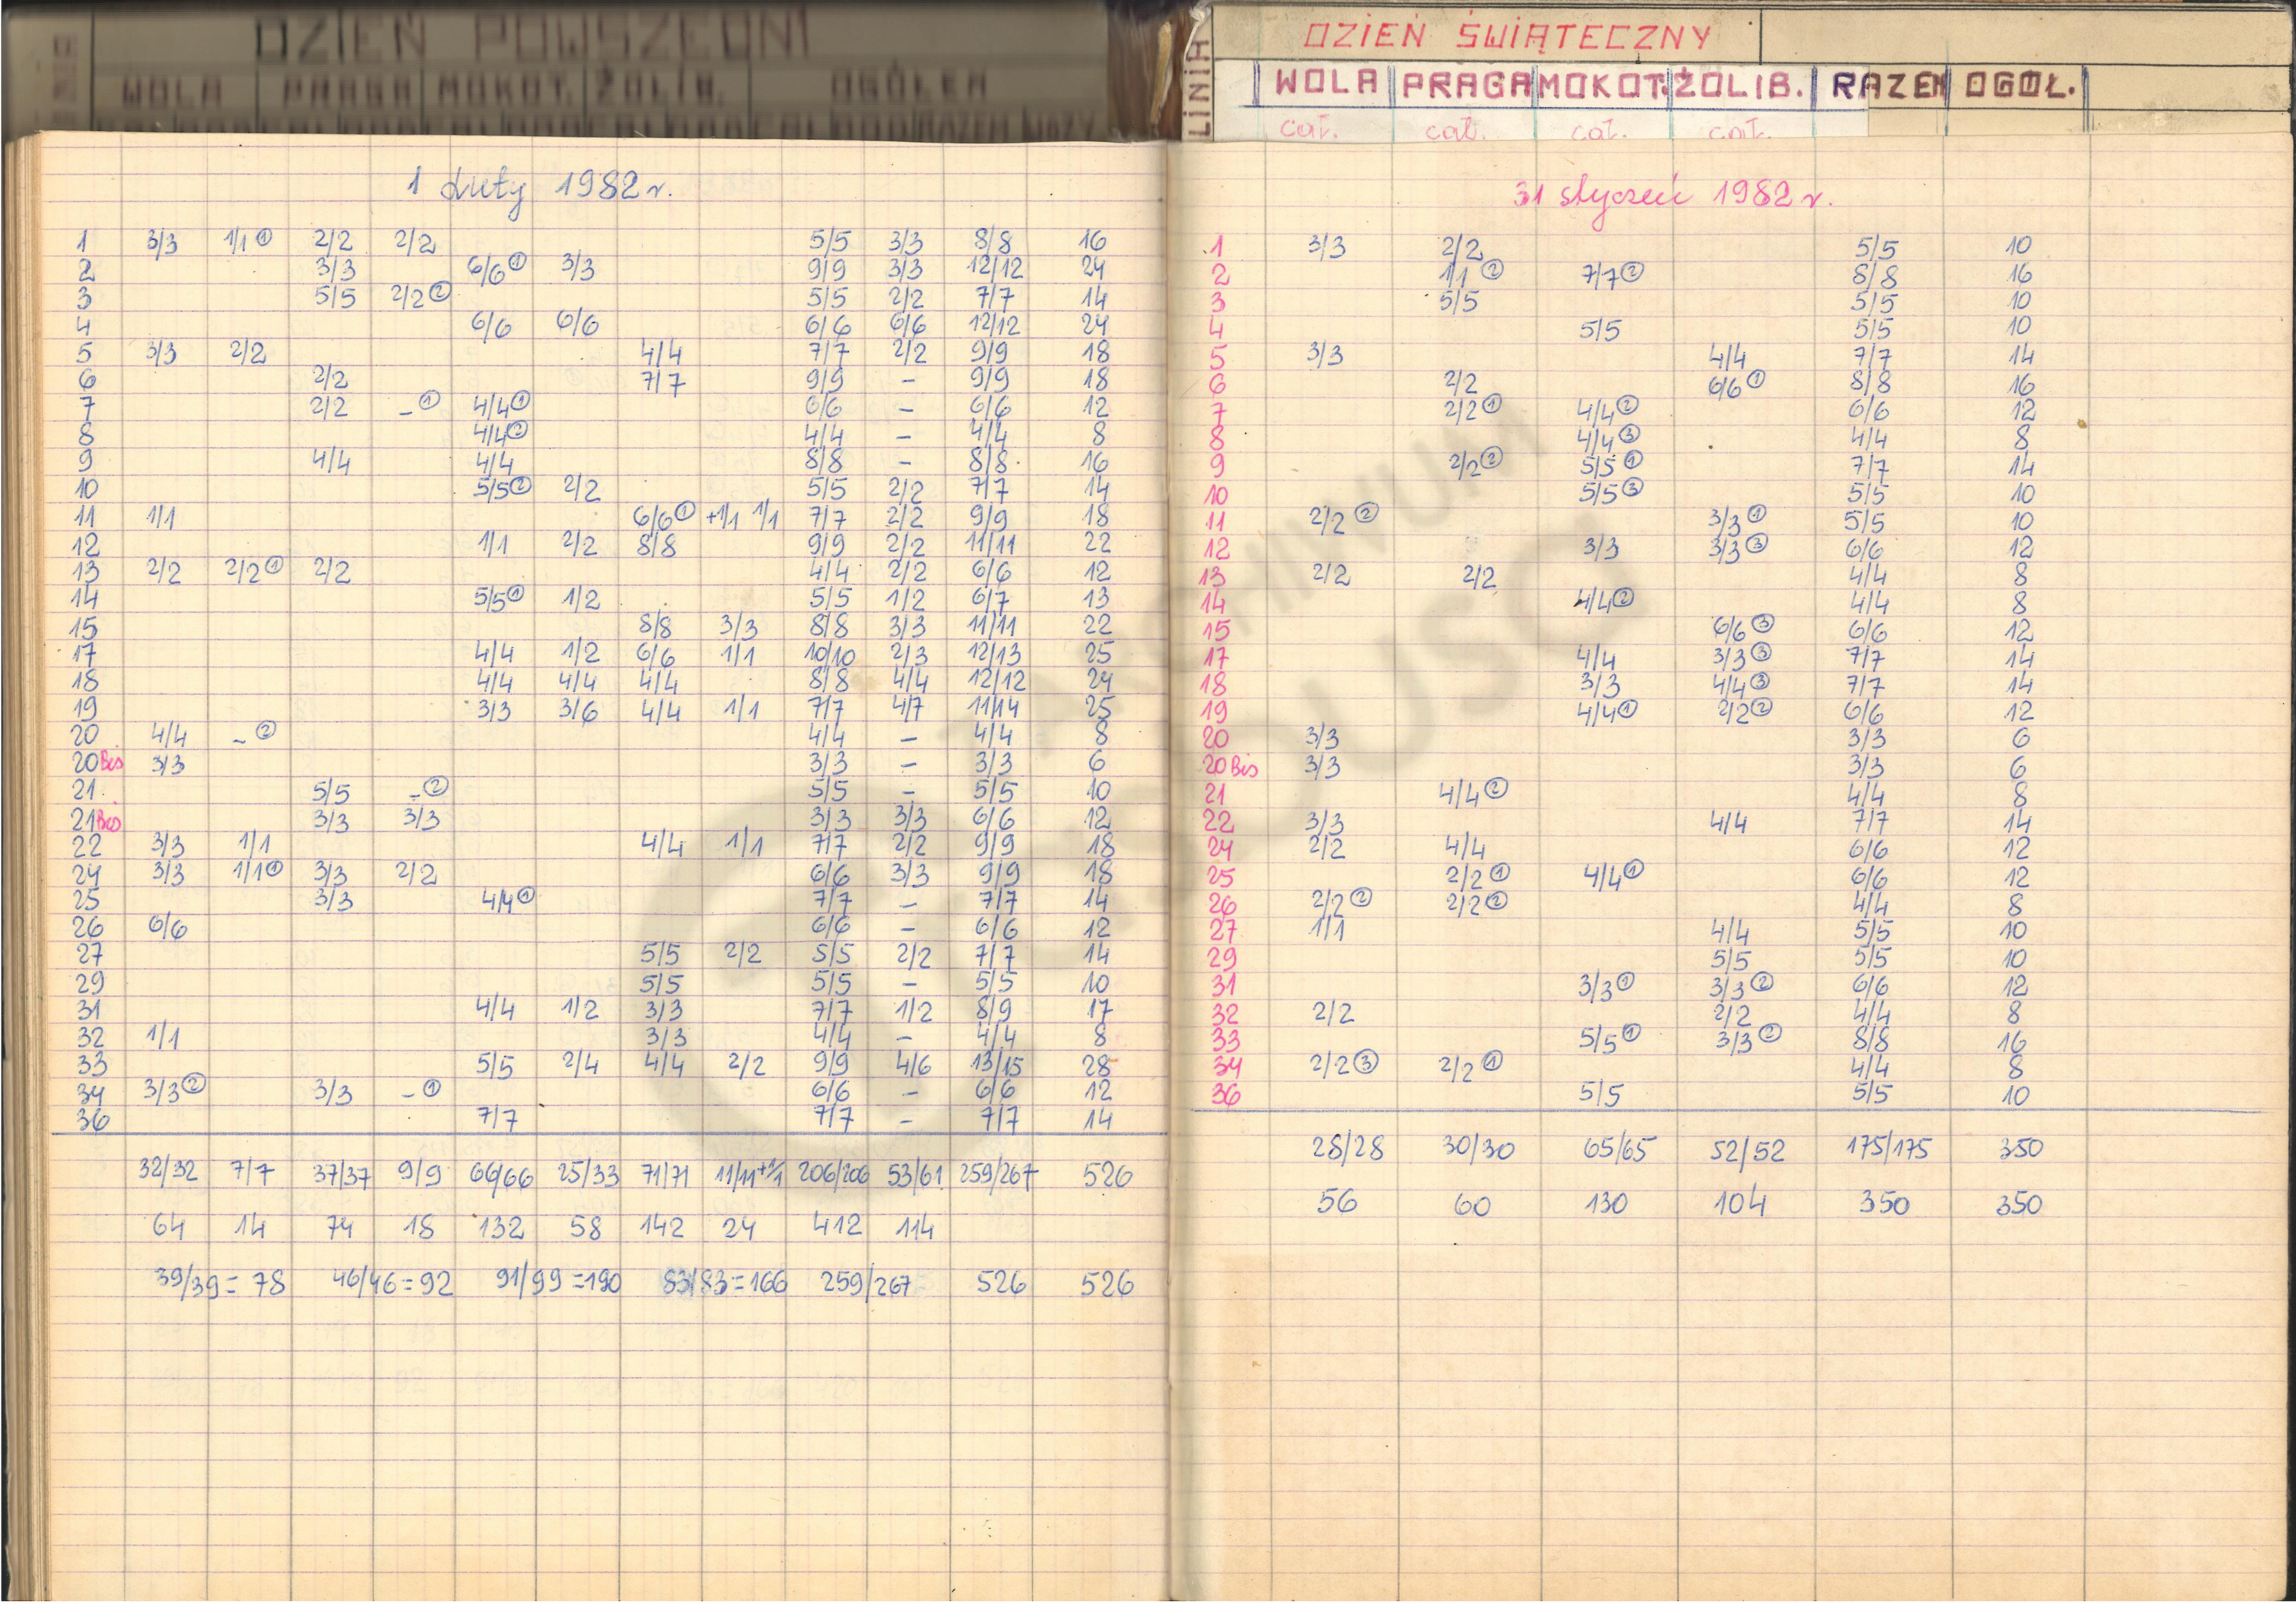 DZIEŃ POWSZEDNI
WOLA PRAGA MOKOT. ŻOLIB. OGÓŁEM
1 Luty 1982 r.
1 3/3 1/1 ① 2/2 2/2 5/5 3/3 8/8 16
2 3/3 6/6 ① 3/3 9/9 3/3 12/12 24
3 5/5 2/2 ② 5/5 2/2 7/7 14
4 6/6 6/6 6/6 6/6 12/12 24
5 3/3 2/2 4/4 7/7 2/2 9/9 18
6 2/2 7/7 9/9 – 9/9 18
7 2/2 – ① 4/4 ① 6/6 – 6/6 12
8 4/4 ② 4/4 – 4/4 8
9 4/4 4/4 8/8 – 8/8 16
10 5/5 ② 2/2 5/5 2/2 7/7 14
11 1/1 6/6 ① +1/1 1/1 7/7 2/2 9/9 18
12 1/1 2/2 8/8 9/9 2/2 11/11 22
13 2/2 2/2 ① 2/2 4/4 2/2 6/6 12
14 5/5 ① 1/2 5/5 1/2 6/7 13
15 8/8 3/3 8/8 3/3 11/11 22
17 4/4 1/2 6/6 1/1 10/10 2/3 12/13 25
18 4/4 4/4 4/4 8/8 4/4 12/12 24
19 3/3 3/6 4/4 1/1 7/7 4/7 11/14 25
20 4/4 – ② 4/4 – 4/4 8
20 Bis 3/3 3/3 – 3/3 6
21 5/5 – ② 5/5 – 5/5 10
21 Bis 3/3 3/3 3/3 3/3 6/6 12
22 3/3 1/1 4/4 1/1 7/7 2/2 9/9 18
24 3/3 1/1 ① 3/3 2/2 6/6 3/3 9/9 18
25 3/3 4/4 ① 7/7 – 7/7 14
26 6/6 6/6 – 6/6 12
27 5/5 2/2 5/5 2/2 7/7 14
29 5/5 5/5 – 5/5 10
31 4/4 1/2 3/3 7/7 1/2 8/9 17
32 1/1 3/3 4/4 – 4/4 8
33 5/5 2/4 4/4 2/2 9/9 4/6 13/15 28
34 3/3 ② 3/3 – ① 6/6 – 6/6 12
36 7/7 7/7 – 7/7 14
32/32 7/7 37/37 9/9 66/66 25/33 71/71 11/11 +1/1 206/206 53/61 259/267 526
64 14 74 18 132 58 142 24 412 114
39/39 = 78 46/46 = 92 91/99 = 190 83/83 = 166 259/267 526 526
DZIEŃ ŚWIĄTECZNY
LINIA WOLA PRAGA MOKOT. ŻOLIB. RAZEM OGÓŁ.
cał. cał. cał. cał.
31 styczeń 1982 r.
1 3/3 2/2 5/5 10
2 1/1 ② 7/7 ② 8/8 16
3 5/5 5/5 10
4 5/5 5/5 10
5 3/3 4/4 7/7 14
6 2/2 6/6 ① 8/8 16
7 2/2 ① 4/4 ② 6/6 12
8 4/4 ③ 4/4 8
9 2/2 ② 5/5 ① 7/7 14
10 5/5 ③ 5/5 10
11 2/2 ② 3/3 ① 5/5 10
12 3/3 3/3 ③ 6/6 12
13 2/2 2/2 4/4 8
14 4/4 ② 4/4 8
15 6/6 ③ 6/6 12
17 4/4 3/3 ③ 7/7 14
18 3/3 4/4 ③ 7/7 14
19 4/4 ① 2/2 ② 6/6 12
20 3/3 3/3 6
20 Bis 3/3 3/3 6
21 4/4 ② 4/4 8
22 3/3 4/4 7/7 14
24 2/2 4/4 6/6 12
25 2/2 ① 4/4 ① 6/6 12
26 2/2 ② 2/2 ② 4/4 8
27 1/1 4/4 5/5 10
29 5/5 5/5 10
31 3/3 ① 3/3 ② 6/6 12
32 2/2 2/2 4/4 8
33 5/5 ① 3/3 ② 8/8 16
34 2/2 ③ 2/2 ① 4/4 8
36 5/5 5/5 10
28/28 30/30 65/65 52/52 175/175 350
56 60 130 104 350 350